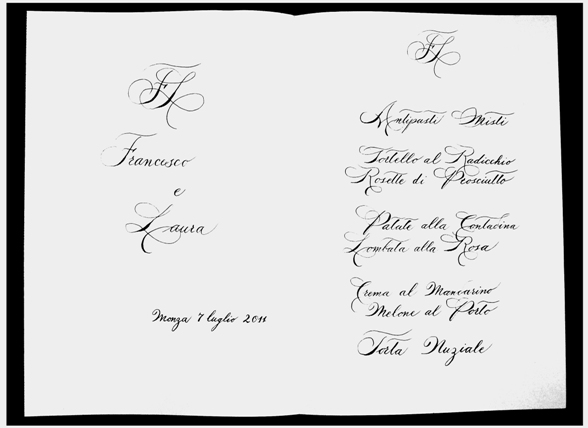 FL
Francesco
e
Laura
Monza 7 luglio 2011
FL
Antipasti Misti
Tortello al Radicchio
Rosette di Prosciutto
Patate alla Contadina
Lombata alla Rosa
Crema al Mandarino
Melone al Porto
Torta Nuziale